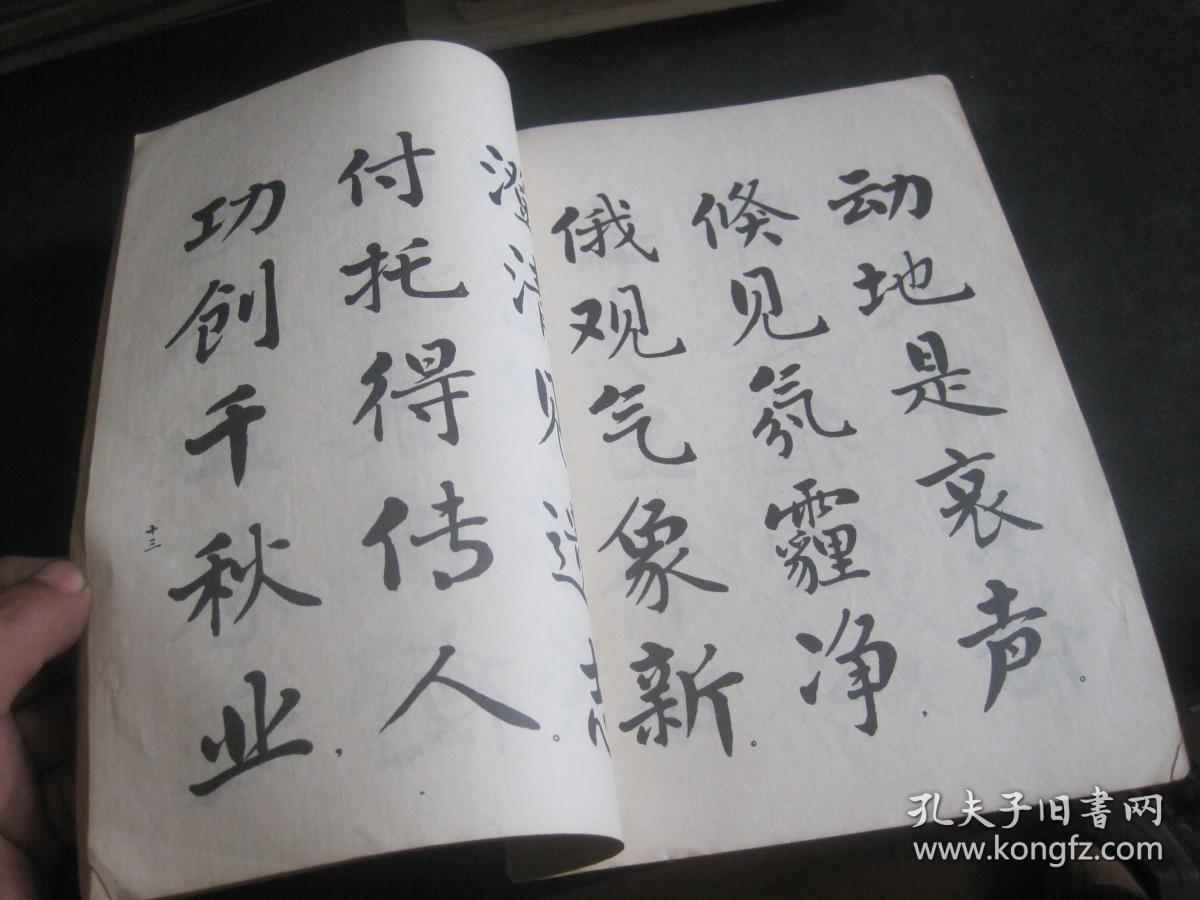 动地是哀声。
倏见氛霾净，
俄观气象新。
澄清
付托得传人。
功创千秋业，
十三
孔夫子旧书网
www.kongfz.com